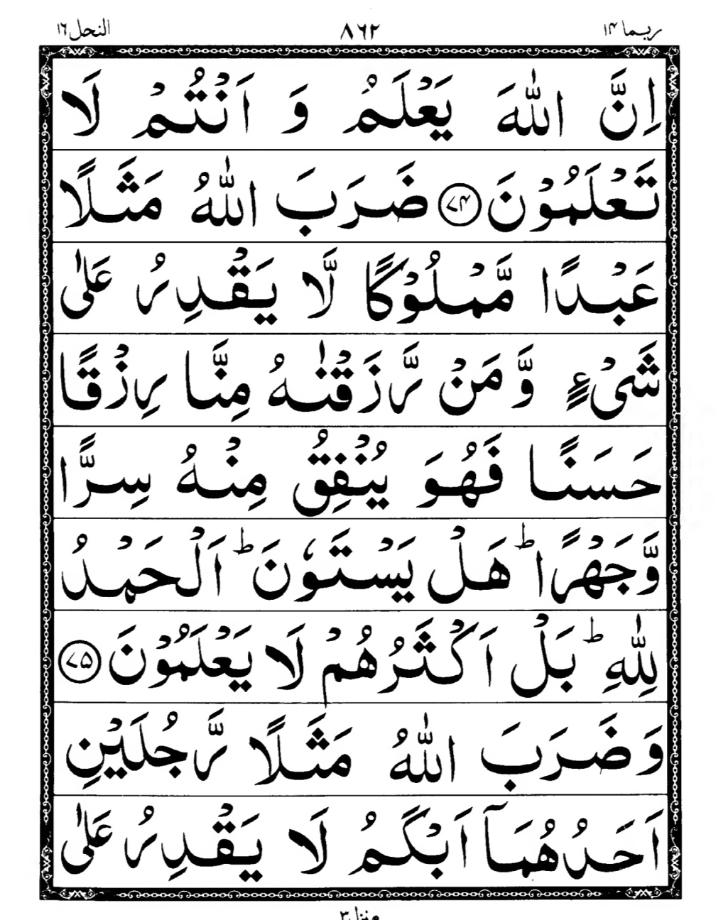 ربما ١٤ ٨٦٢ النحل ١٦
اِنَّ اللّٰهَ يَعْلَمُ وَ اَنْتُمْ لَا
تَعْلَمُوْنَ ﴿٧٤﴾ ضَرَبَ اللّٰهُ مَثَلًا
عَبْدًا مَّمْلُوْكًا لَّا يَقْدِرُ عَلٰى
شَىْءٍ وَّ مَنْ رَّزَقْنٰهُ مِنَّا رِزْقًا
حَسَنًا فَهُوَ يُنْفِقُ مِنْهُ سِرًّا
وَّجَهْرًا ؕ هَلْ يَسْتَوٗنَ ؕ اَلْحَمْدُ
لِلّٰهِ ؕ بَلْ اَكْثَرُهُمْ لَا يَعْلَمُوْنَ ﴿٧٥﴾
وَضَرَبَ اللّٰهُ مَثَلًا رَّجُلَيْنِ
اَحَدُهُمَاۤ اَبْكَمُ لَا يَقْدِرُ عَلٰى
منزل ٣